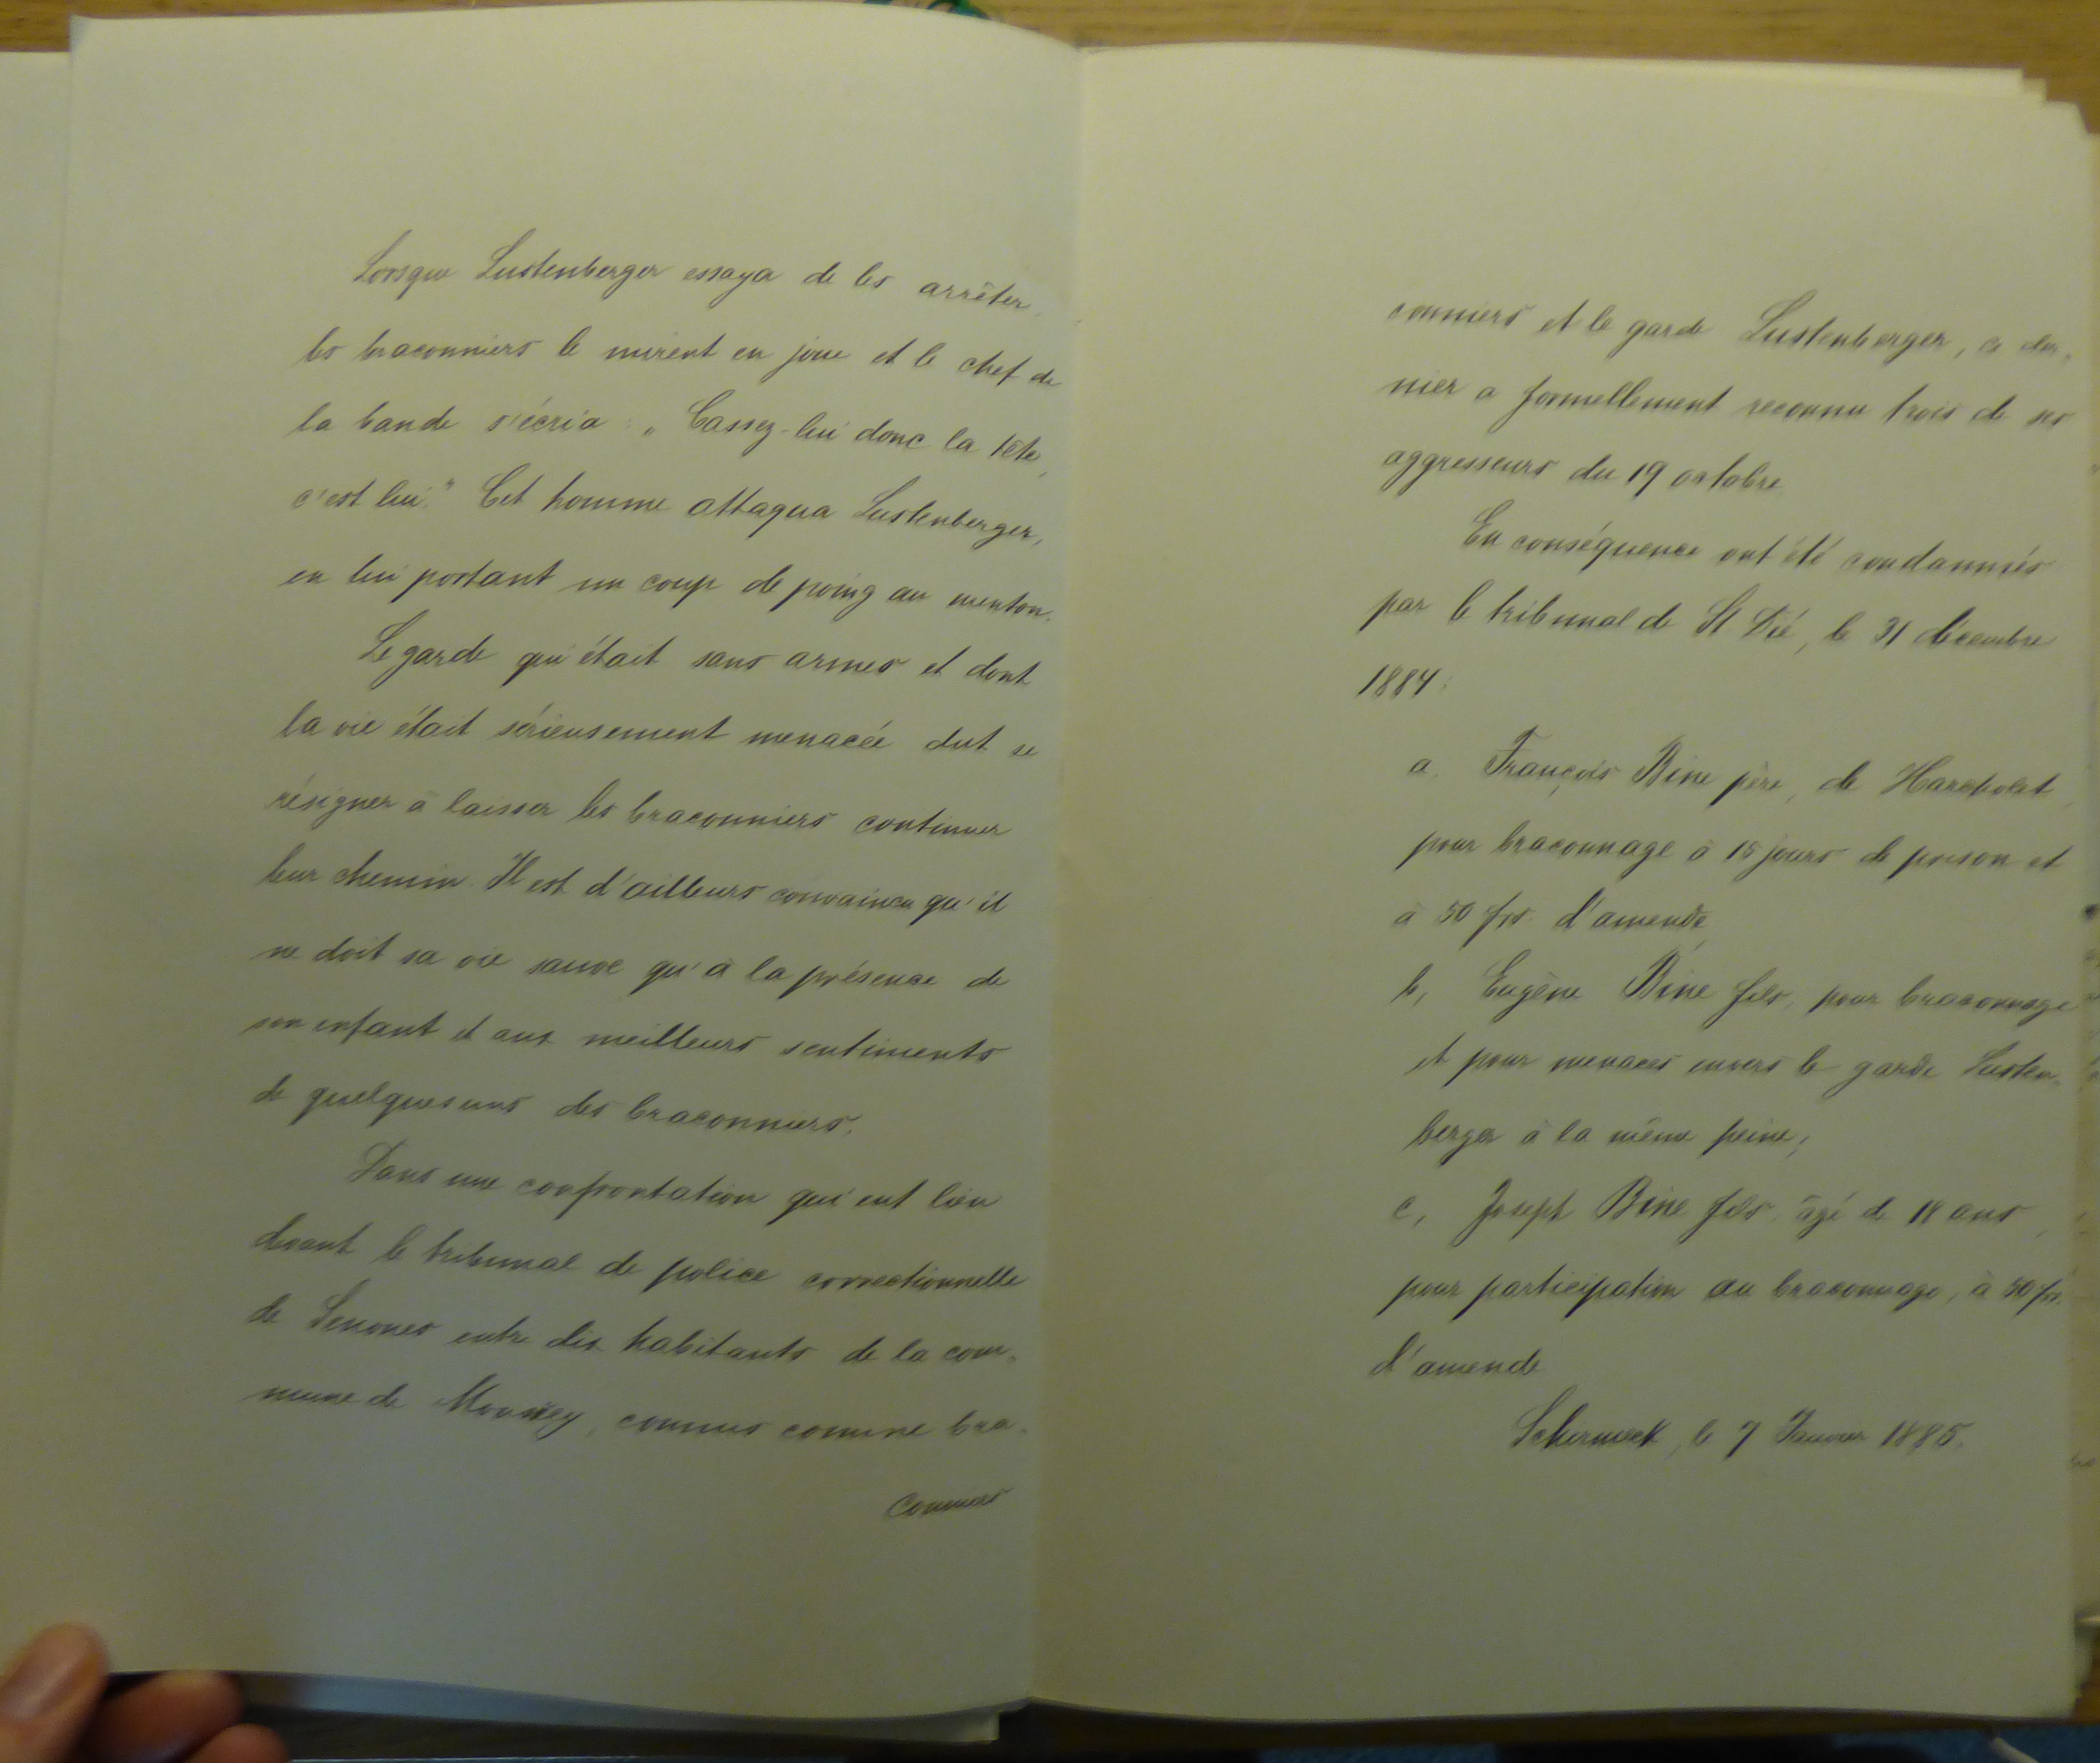 Lorsque Lustenberger essaya de les arrêter,
les braconniers le mirent en joue et le chef de
la bande s'écria : „Cassez-lui donc la tête,
c'est lui." Cet homme attaqua Lustenberger,
en lui portant un coup de poing au menton.
Le garde qui était sans armes et dont
la vie était sérieusement menacée dut se
résigner à laisser les braconniers continuer
leur chemin. Il est d'ailleurs convaincu qu'il
ne doit sa vie sauve qu'à la présence de
son enfant et aux meilleurs sentiments
de quelques uns des braconniers.
Dans une confrontation qui eut lieu
devant le tribunal de police correctionnelle
de Senones entre dix habitants de la com-
mune de Moussey, connus comme bra-
conniers
conniers et le garde Lustenberger, ce der-
nier a formellement reconnu trois de ses
aggresseurs du 19 octobre.
En conséquence ont été condamnés
par le tribunal de St Dié, le 31 décembre
1884:
a, François Bine père, de Harcholet,
pour braconnage à 15 jours de prison et
à 50 frs. d'amende,
b, Eugène Bine fils, pour braconnage
et pour menaces envers le garde Lusten-
berger à la même peine;
c, Joseph Bine fils, âgé de 18 ans,
pour participation au braconnage, à 50 frs.
d'amende
Schirmeck, le 7 Janvier 1885.